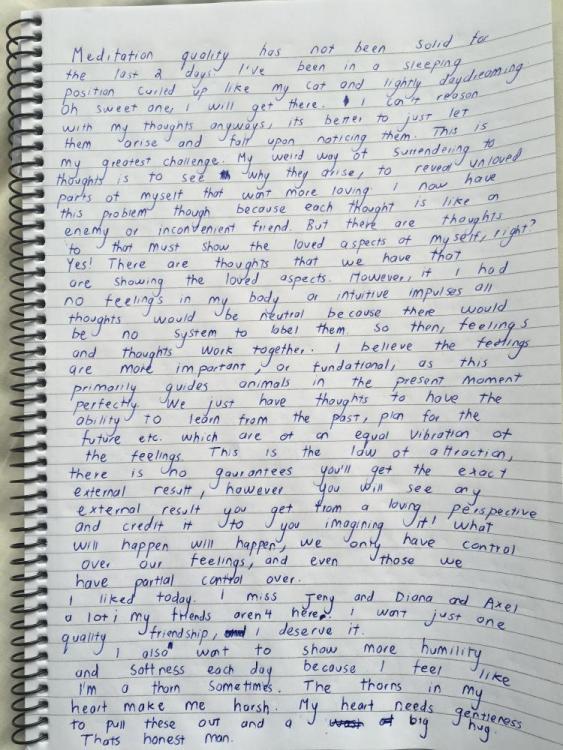 Meditation quality has not been solid for
the last 2 days I've been in a sleeping
position curled up like my cat and lightly daydreaming
Oh sweet one, I will get there. I can't reason
with my thoughts anyways, its better to just let
them arise and fall upon noticing them. This is
my greatest challenge. My weird way of surrendering to
thoughts is to see why they arise, to reveal unloved
parts of myself that want more loving I now have
this problem though because each thought is like an
enemy or inconvenient friend. But there are thoughts
to that must show the loved aspects of myself, right?
Yes! There are thoughts that we have that
are showing the loved aspects. However, if I had
no feelings in my body or intuitive impulses all
thoughts would be neutral because there would
be no system to label them. So then, feelings
and thoughts work together. I believe the feelings
are more important, or fundational, as this
primarily guides animals in the present moment
perfectly We just have thoughts to have the
ability to learn from the past, plan for the
future etc. which are of an equal vibration of
the feelings. This is the law of attraction,
there is no gaurantees you'll get the exact
external result, however you will see any
external result you get from a loving perspective
and credit it to you imagining it! What
will happen will happen, we only have control
over our feelings, and even those we
have partial control over.
I liked today. I miss Teny and Diana and Axel
a lot; my friends aren't here. I want just one
quality friendship, I deserve it.
I also want to show more humility
and softness each day because I feel like
I'm a thorn sometimes. The thorns in my
heart make me harsh. My heart needs gentleness
to pull these out and a big hug.
Thats honest man.